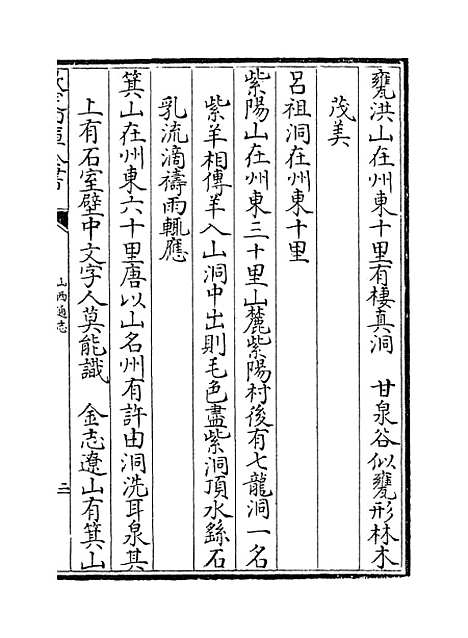 甕洪山在州東十里有棲真洞　甘泉谷似甕形林木
茂美
呂祖洞在州東十里
紫陽山在州東三十里山麓紫陽村後有七龍洞一名
紫羊相傳羊入山洞中出則毛色盡紫洞頂水繇石
乳流滴禱雨輒應
箕山在州東六十里唐以山名州有許由洞洗耳泉其
上有石室壁中文字人莫能識　金志遼山有箕山
欽定四庫全書
山西通志
二